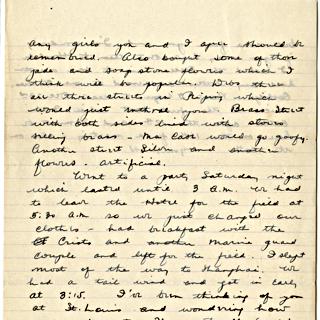 any girls you and I agree should be
remembered. Also bought some of those
jade and soap stone flowers which I
think will be popular. Drove thru
all three streets in Peiping which
would just enthrall you. Brass Street
with both sides lined with stores
selling brass - would go goofy.
Another street Silver and another
flowers. artificial.
Went to a party Saturday night
which lasted until 3 A.M. We had
to leave the Hotel for the field at
5:30 A.M so we just changed our
clothes - had breakfast with the
Crists and another Marine guard
couple and left for the field. I slept
most of the way to Shanghai. We
had a tail wind and got in early
at 3:15. I've been thinking of you
at St. Louis and wondering how